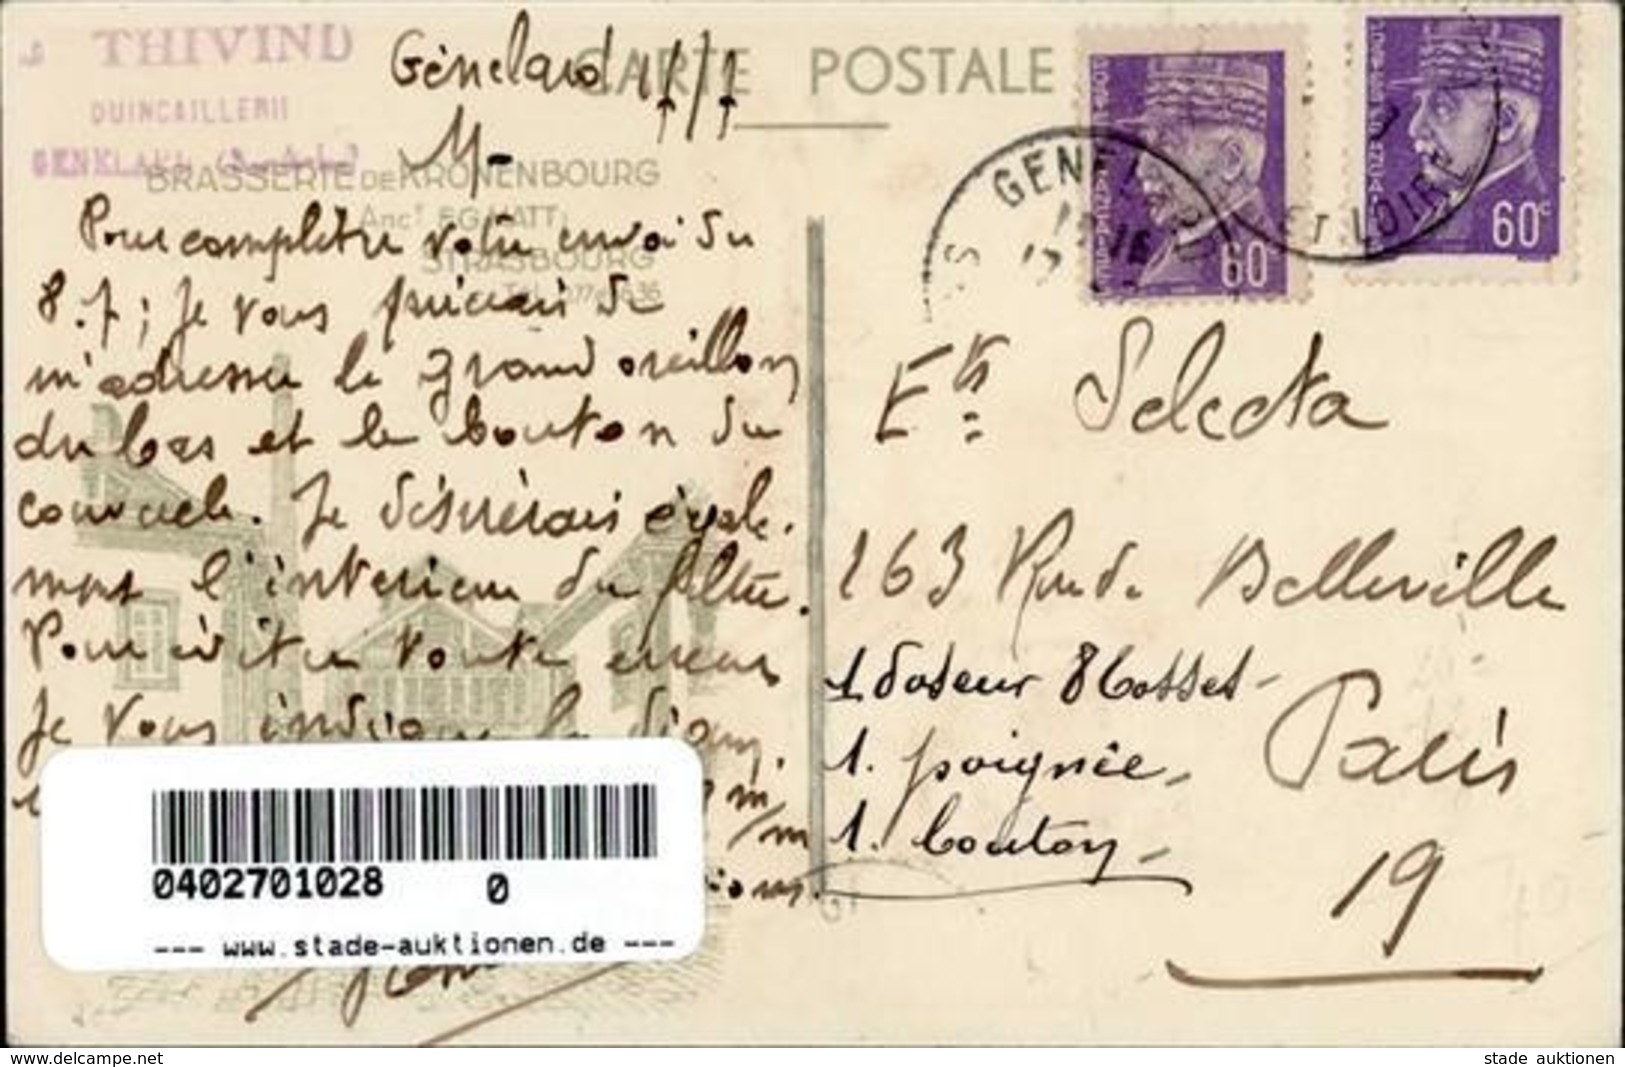 THIVIND
QUINCAILLERIE
GENELARD (S.-&-L.)
CARTE POSTALE
Génelard
M-
BRASSERIE DE KRONENBOURG
Anct F.G. HATT
STRASBOURG
Pour completer votre envoi du
8.7; Je vous prierais de
m'adresser le grand oreillon
du bas et le bouton du
couvercle. Je désirerais égale-
ment l'interieur du filtre.
Pour éviter toute erreur
Je vous indique le diam.
m/m
GENELARD
SAONE ET LOIRE
POSTES FRANÇAISES
60
POSTES FRANÇAISES
60c
Ets Selecta
263 Rue de Belleville
1 doseur 8 tasses -
1. poignée -
1. bouton -
Paris
19
0402701028 0
--- www.stade-auktionen.de ---
www.delcampe.net
stade auktionen